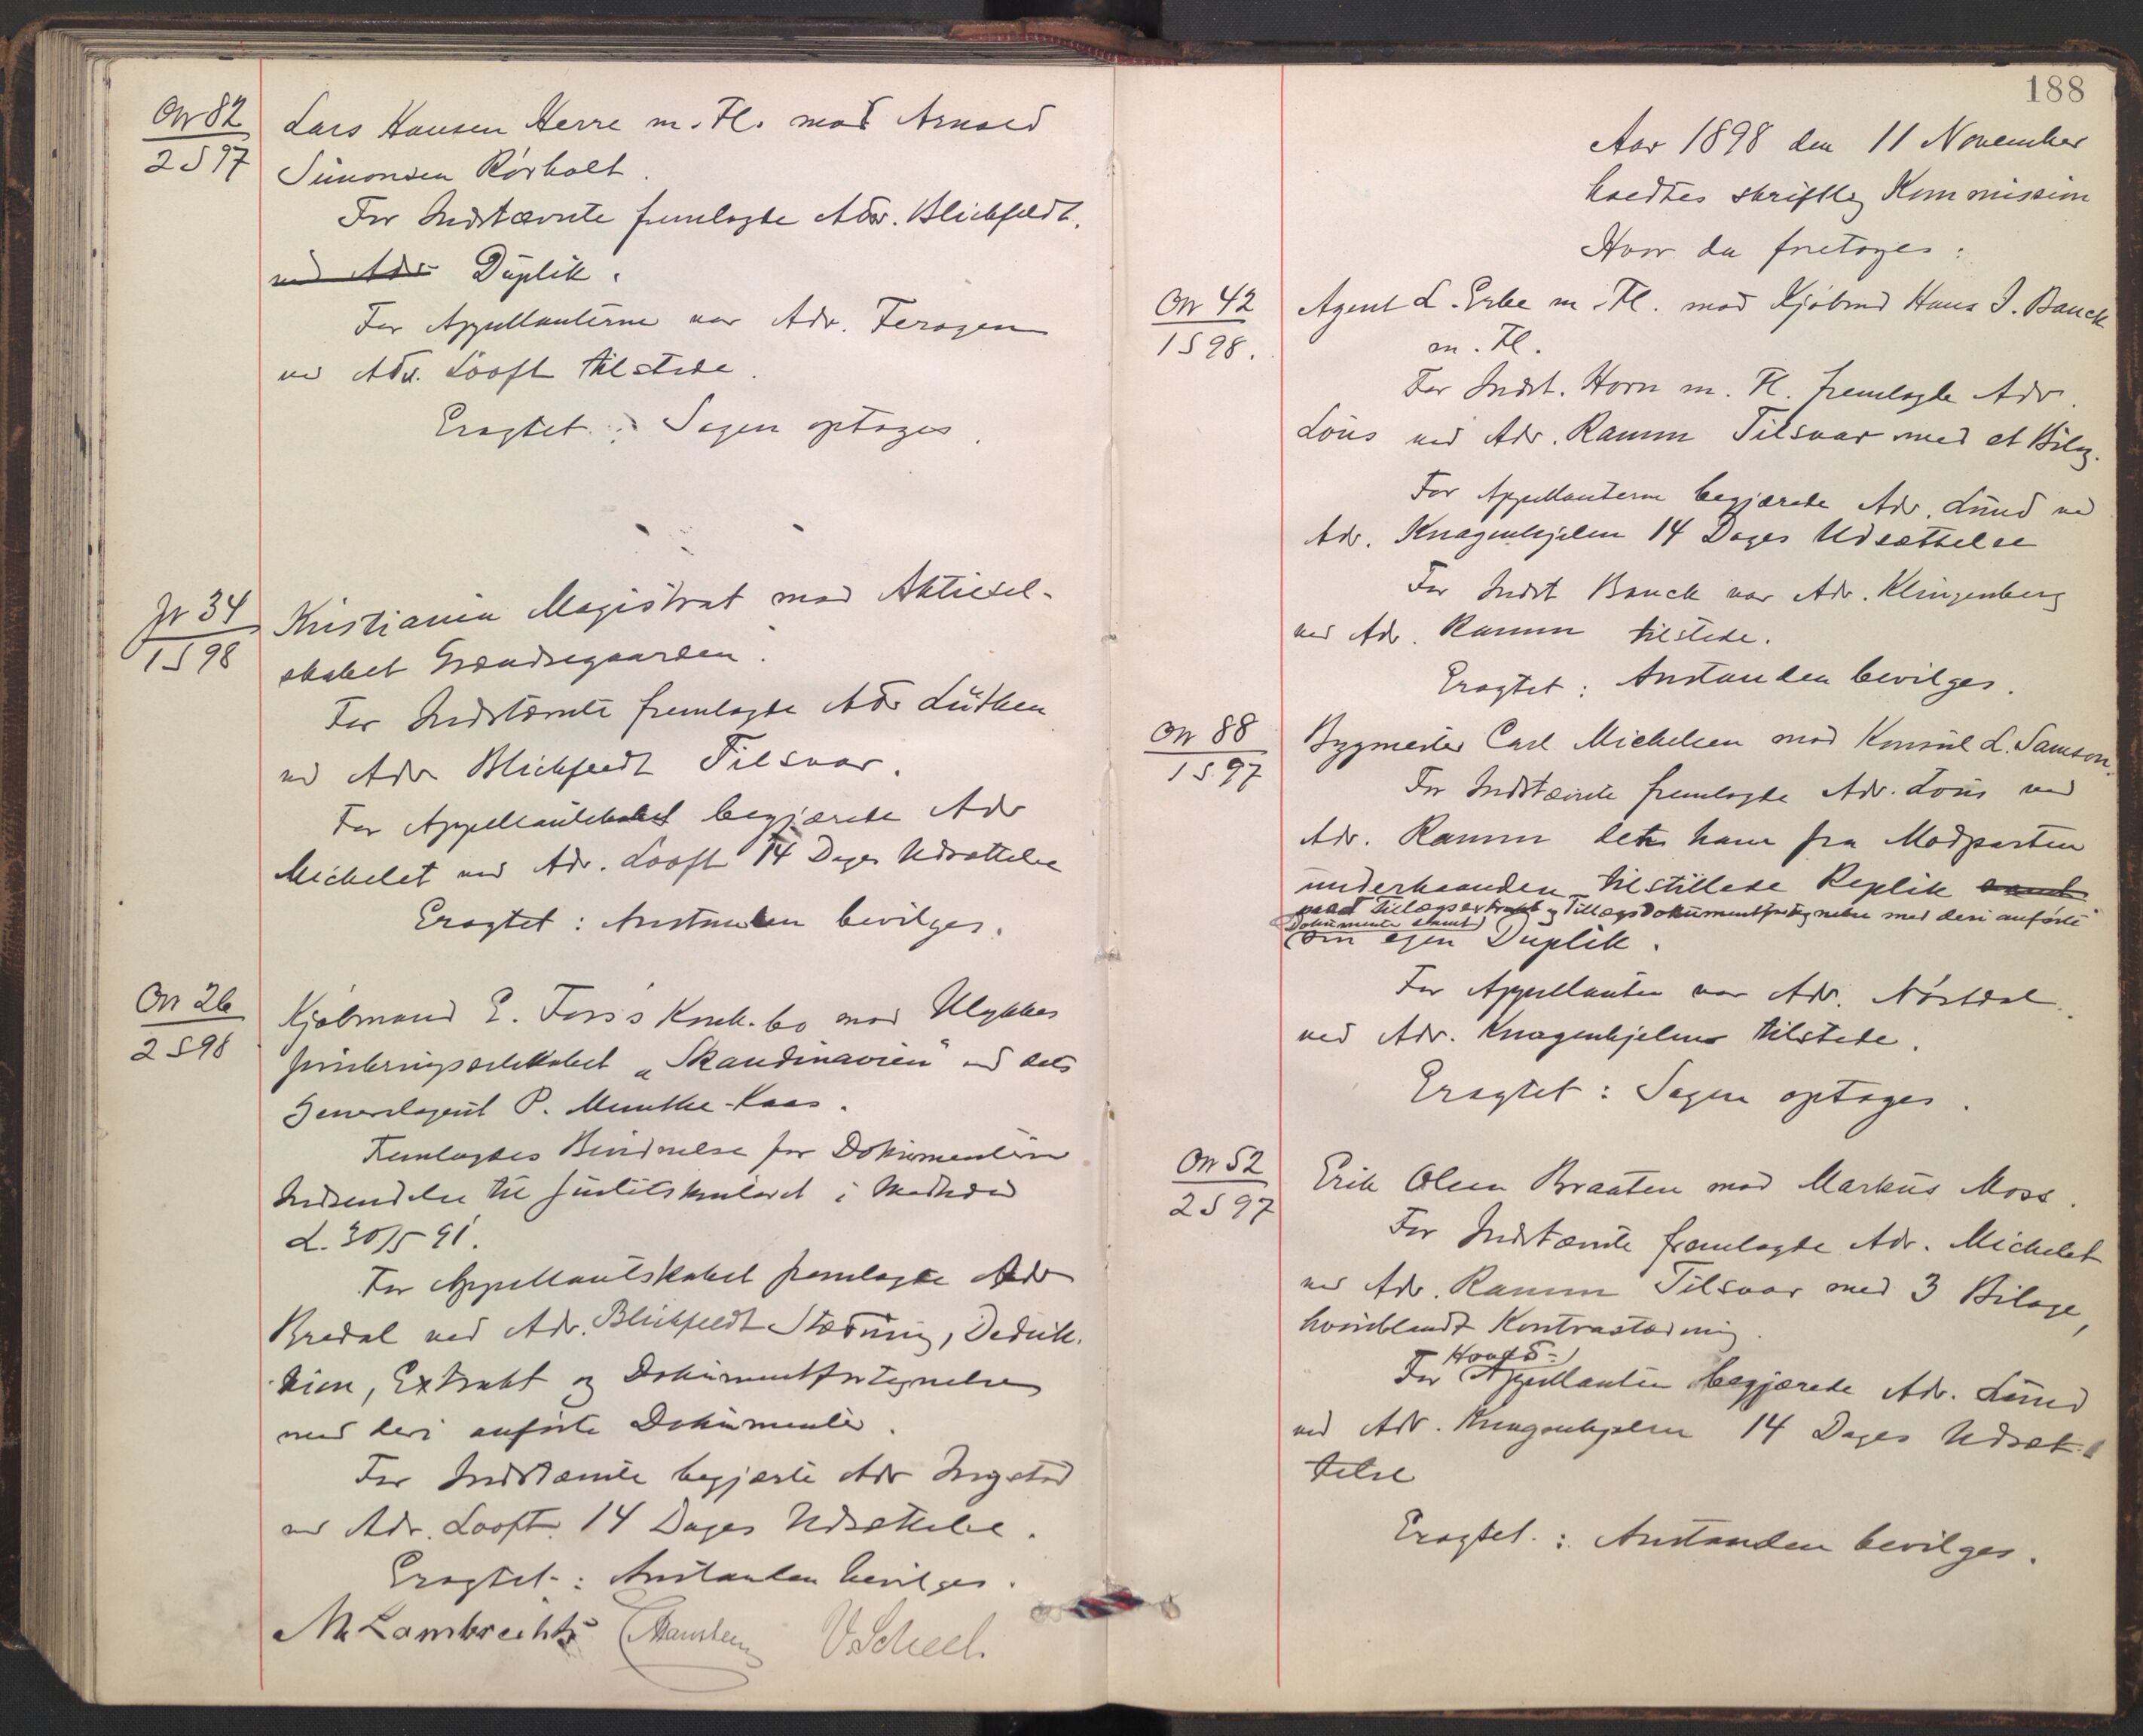 On 82
2 S 97
Lars Hansen Herre m. Fl. mod Arnold
Simonsen Rörholt.
For Indstævnte fremlagde Adv. Blichfeldt.
ved Adv Duplik.
For Appellanterne var Adv. Feragen
ved Adv. Looft tilstede.
Eragtet: Sagen optages.
Nr 34
1 S 98
Kristiania Magistrat mod Aktiesel-
skabet Grændsegaarden.
For Indstævnte fremlagde Adv Lütken
ved Adv Blichfeldt Tilsvar.
For Appellantskabet begjærede Adv
Michelet ved Adv. Looft 14 Dages Udsættelse
Eragtet: Anstanden bevilges.
On 26
2 S 98
Kjøbmand E. Foss's Konk.bo mod Ulykkes
forsikringsselskabet „Skandinavien" ved dets
Generalagent P. Munthe-Kaas.
Fremlagdes Bevidnelse for Dokumenternes
Indsendelse til Justitskontoret i
d. 30/5 91.
For Appellantskabet fremlagde Adv
Bredal ved Adv. Blichfeldt Stævning, Deduk-
tion, Extrakt og Dokumentfortegnelse
med deri anførte Dokumenter.
For Indstævnte begjærte Adv Ingstad
ved Adv. Looft 14 Dages Udsættelse.
Eragtet: Anstanden bevilges.
M Lambrechts V. Scheel.
188
Aar 1898 den 11 November
holdtes skriftlig Kommission
Hvor da foretoges:
On 42
1 S 98.
Agent L. Erbe m. Fl. mod Kjöbmd Hans J. Banck
m. Fl.
For Indst. Horn m. Fl. fremlagde Adv.
Lous ved Adv. Ramm Tilsvar med et Bilag.
For Appellanterne begjærede Adv. Lund ved
Adv. Knagenhjelm 14 Dages Udsættelse
For Indst Banck var Adv. Klingenberg
ved Adv. Ramm tilstede.
Eragtet: Anstanden bevilges.
On 88
1 S. 97
Bygmester Carl Michelsen mod Konsul L. Samson.
For Indstævnte fremlagde Adv. Lous ved
Adv. Ramm den ham fra Modparten
underhaanden tilstillede Replik samt
med Tillægsextrakt og Tillægsdokumentfortegnelse med deri anførte
Dokumenter samt
sin egen Duplik.
For Appellanten var Adv. Nörstdal
ved Adv. Knagenhjelm tilstede.
Eragtet: Sagen optages.
On 52
2 S 97
Erik Olsen Braaten mod Markus Moss.
For Indstævnte fremlagde Adv. Michelet
ved Adv. Ramm Tilsvar med 3 Bilage,
hvoriblandt Kontrastævning.
Hoved-
For Appellanten begjærede Adv. Lund
ved Adv. Knagenhjelm 14 Dages Udsæt-
telse
Eragtet: Anstanden bevilges.